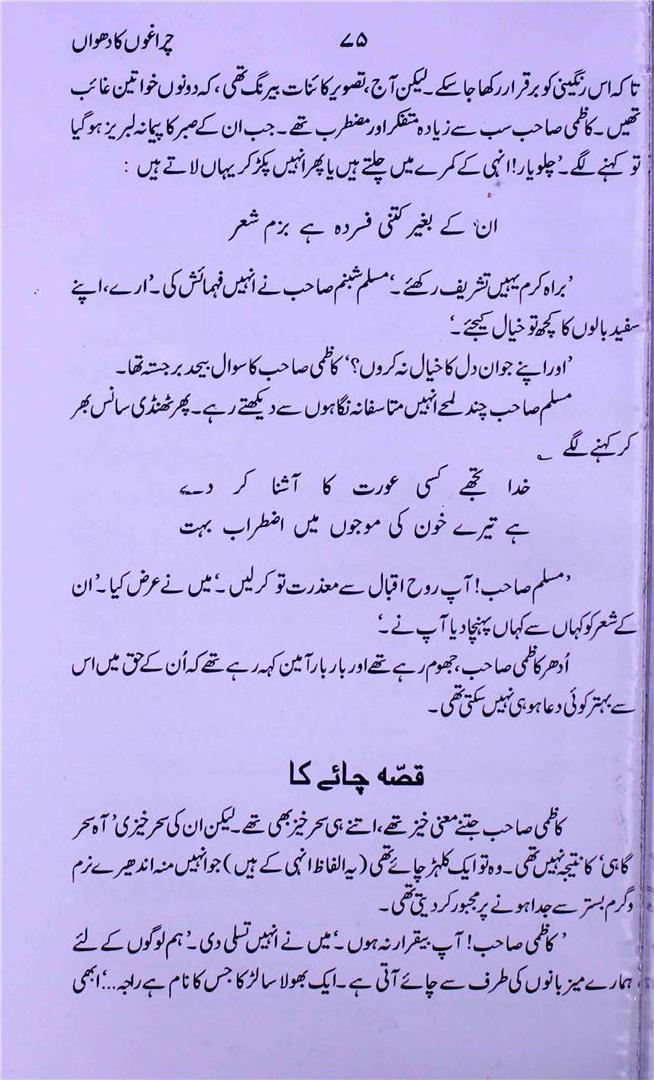 چراغوں کا دھواں ۷۵
تاکہ اس رنگینی کو برقرار رکھا جا سکے۔ لیکن آج، تصویر کائنات بیرنگ تھی، کہ دونوں خواتین غائب
تھیں۔ کاظمی صاحب سب سے زیادہ متفکر اور مضطرب تھے۔ جب ان کے صبر کا پیمانہ لبریز ہو گیا
تو کہنے لگے۔ ’چلو یار! انہی کے کمرے میں چلتے ہیں یا پھر انہیں پکڑ کر یہاں لاتے ہیں :
ان کے بغیر کتنی فسردہ ہے بزم شعر
’براہ کرم یہیں تشریف رکھئے۔‘ مسلم شبنم صاحب نے انہیں فہمائش کی۔ ’ارے، اپنے
سفید بالوں کا کچھ تو خیال کیجئے۔‘
’اور اپنے جوان دل کا خیال نہ کروں؟‘ کاظمی صاحب کا سوال بیحد برجستہ تھا۔
مسلم صاحب چند لمحے انہیں متاسفانہ نگاہوں سے دیکھتے رہے۔ پھر ٹھنڈی سانس بھر
کر کہنے لگے ؎
خدا تجھے کسی عورت کا آشنا کر دے
ہے تیرے خون کی موجوں میں اضطراب بہت
’مسلم صاحب! آپ روح اقبال سے معذرت تو کر لیں۔‘ میں نے عرض کیا۔ ’ان
کے شعر کو کہاں سے کہاں پہنچا دیا آپ نے۔‘
اُدھر کاظمی صاحب، جھوم رہے تھے اور بار بار آمین کہہ رہے تھے کہ اُن کے حق میں اس
سے بہتر کوئی دعا ہو ہی نہیں سکتی تھی۔
قصّہ چائے کا
کاظمی صاحب جتنے معنی خیز تھے، اتنے ہی سحر خیز بھی تھے۔ لیکن ان کی سحر خیزی ’آہ سحر
گاہی‘ کا نتیجہ نہیں تھی۔ وہ تو ایک کلہڑ چائے تھی (یہ الفاظ انہی کے ہیں) جو انہیں منہ اندھیرے نرم
و گرم بستر سے جدا ہونے پر مجبور کر دیتی تھی۔
’کاظمی صاحب! آپ بیقرار نہ ہوں۔‘ میں نے انہیں تسلی دی۔ ’ہم لوگوں کے لئے
ہمارے میزبانوں کی طرف سے چائے آتی ہے۔ ایک بھولا سا لڑکا جس کا نام ہے راجہ...‘ ابھی